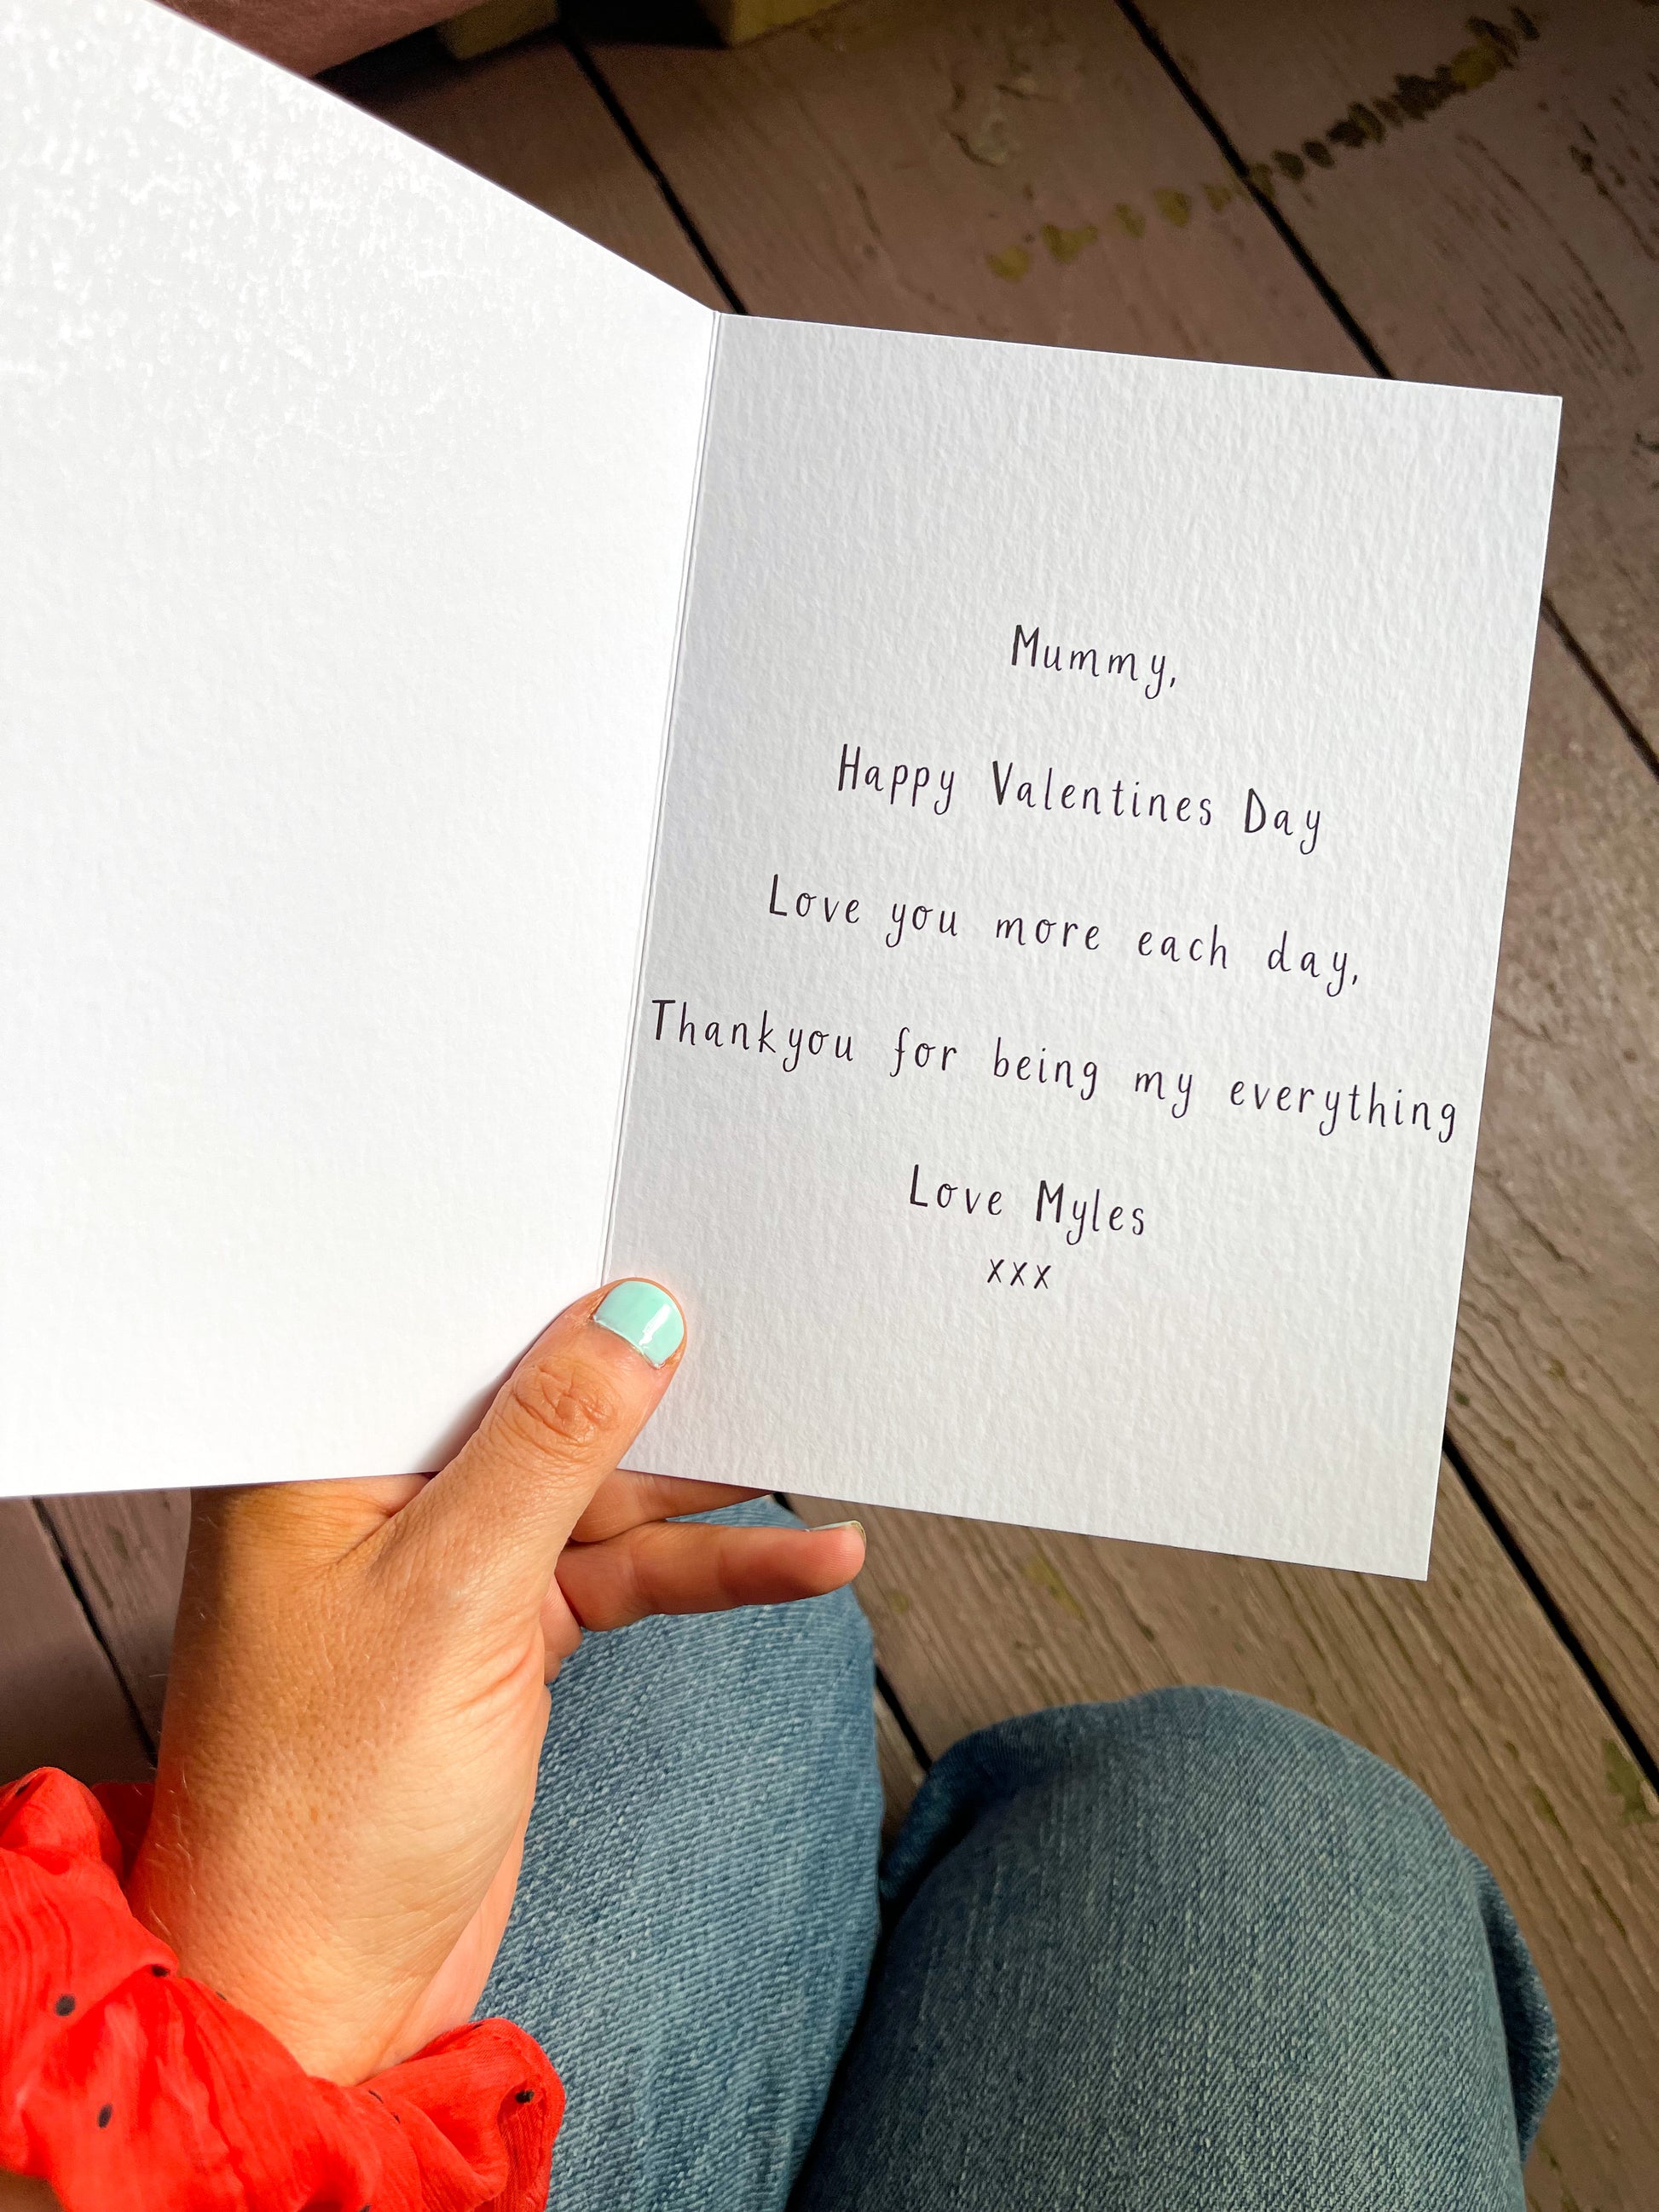 Mummy,
Happy Valentines Day
Love you more each day,
Thankyou for being my everything
Love Myles
xxx